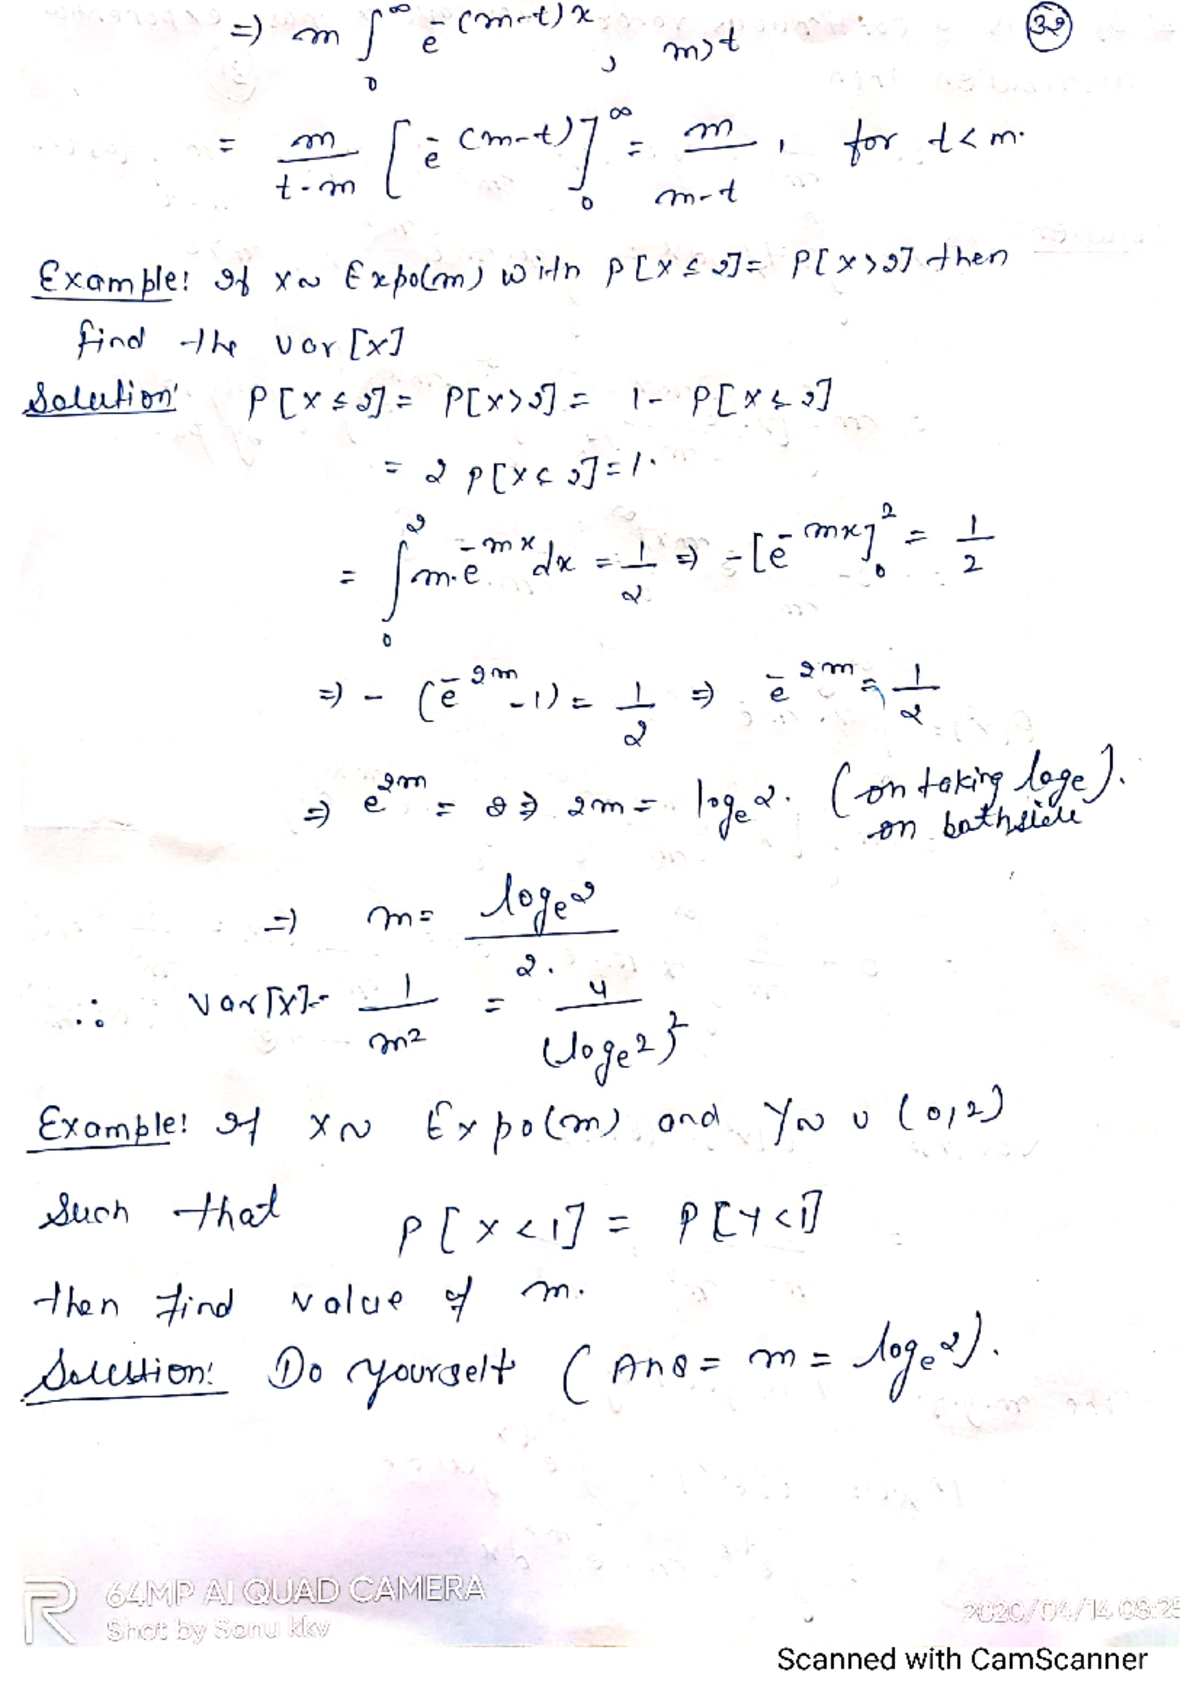 32
⇒ m ∫₀^∞ e^-(m-t)x , m>t
= m/(t-m) [e^-(m-t)]₀^∞ = m/(m-t) , for t<m.
Example: If X~ Expo(m) with P[X≤2]= P[X>2] then
find the var[X]
Solution: P[X≤2]= P[X>2]= 1- P[X≤2]
= 2 P[X≤2]=1.
= ∫₀² m.e^-mx dx = 1/2 ⇒ -[e^-mx]₀² = 1/2
⇒ - (e^-2m -1) = 1/2 ⇒ e^-2m = 1/2
⇒ e^2m = 2 ⇒ 2m = logₑ2. (on taking loge).
on bathside
⇒ m= logₑ2/2.
∴ Var[X]= 1/m² = 4/(logₑ2)²
Example: If X~ Expo(m) and Y~ U(0,2)
Such that P[X<1] = P[Y<1]
then find value of m.
Solution: Do yourself (Ans= m = logₑ2).
R 64MP AI QUAD CAMERA
Shot by Sonu kkv
2020/04/14 08:28
Scanned with CamScanner